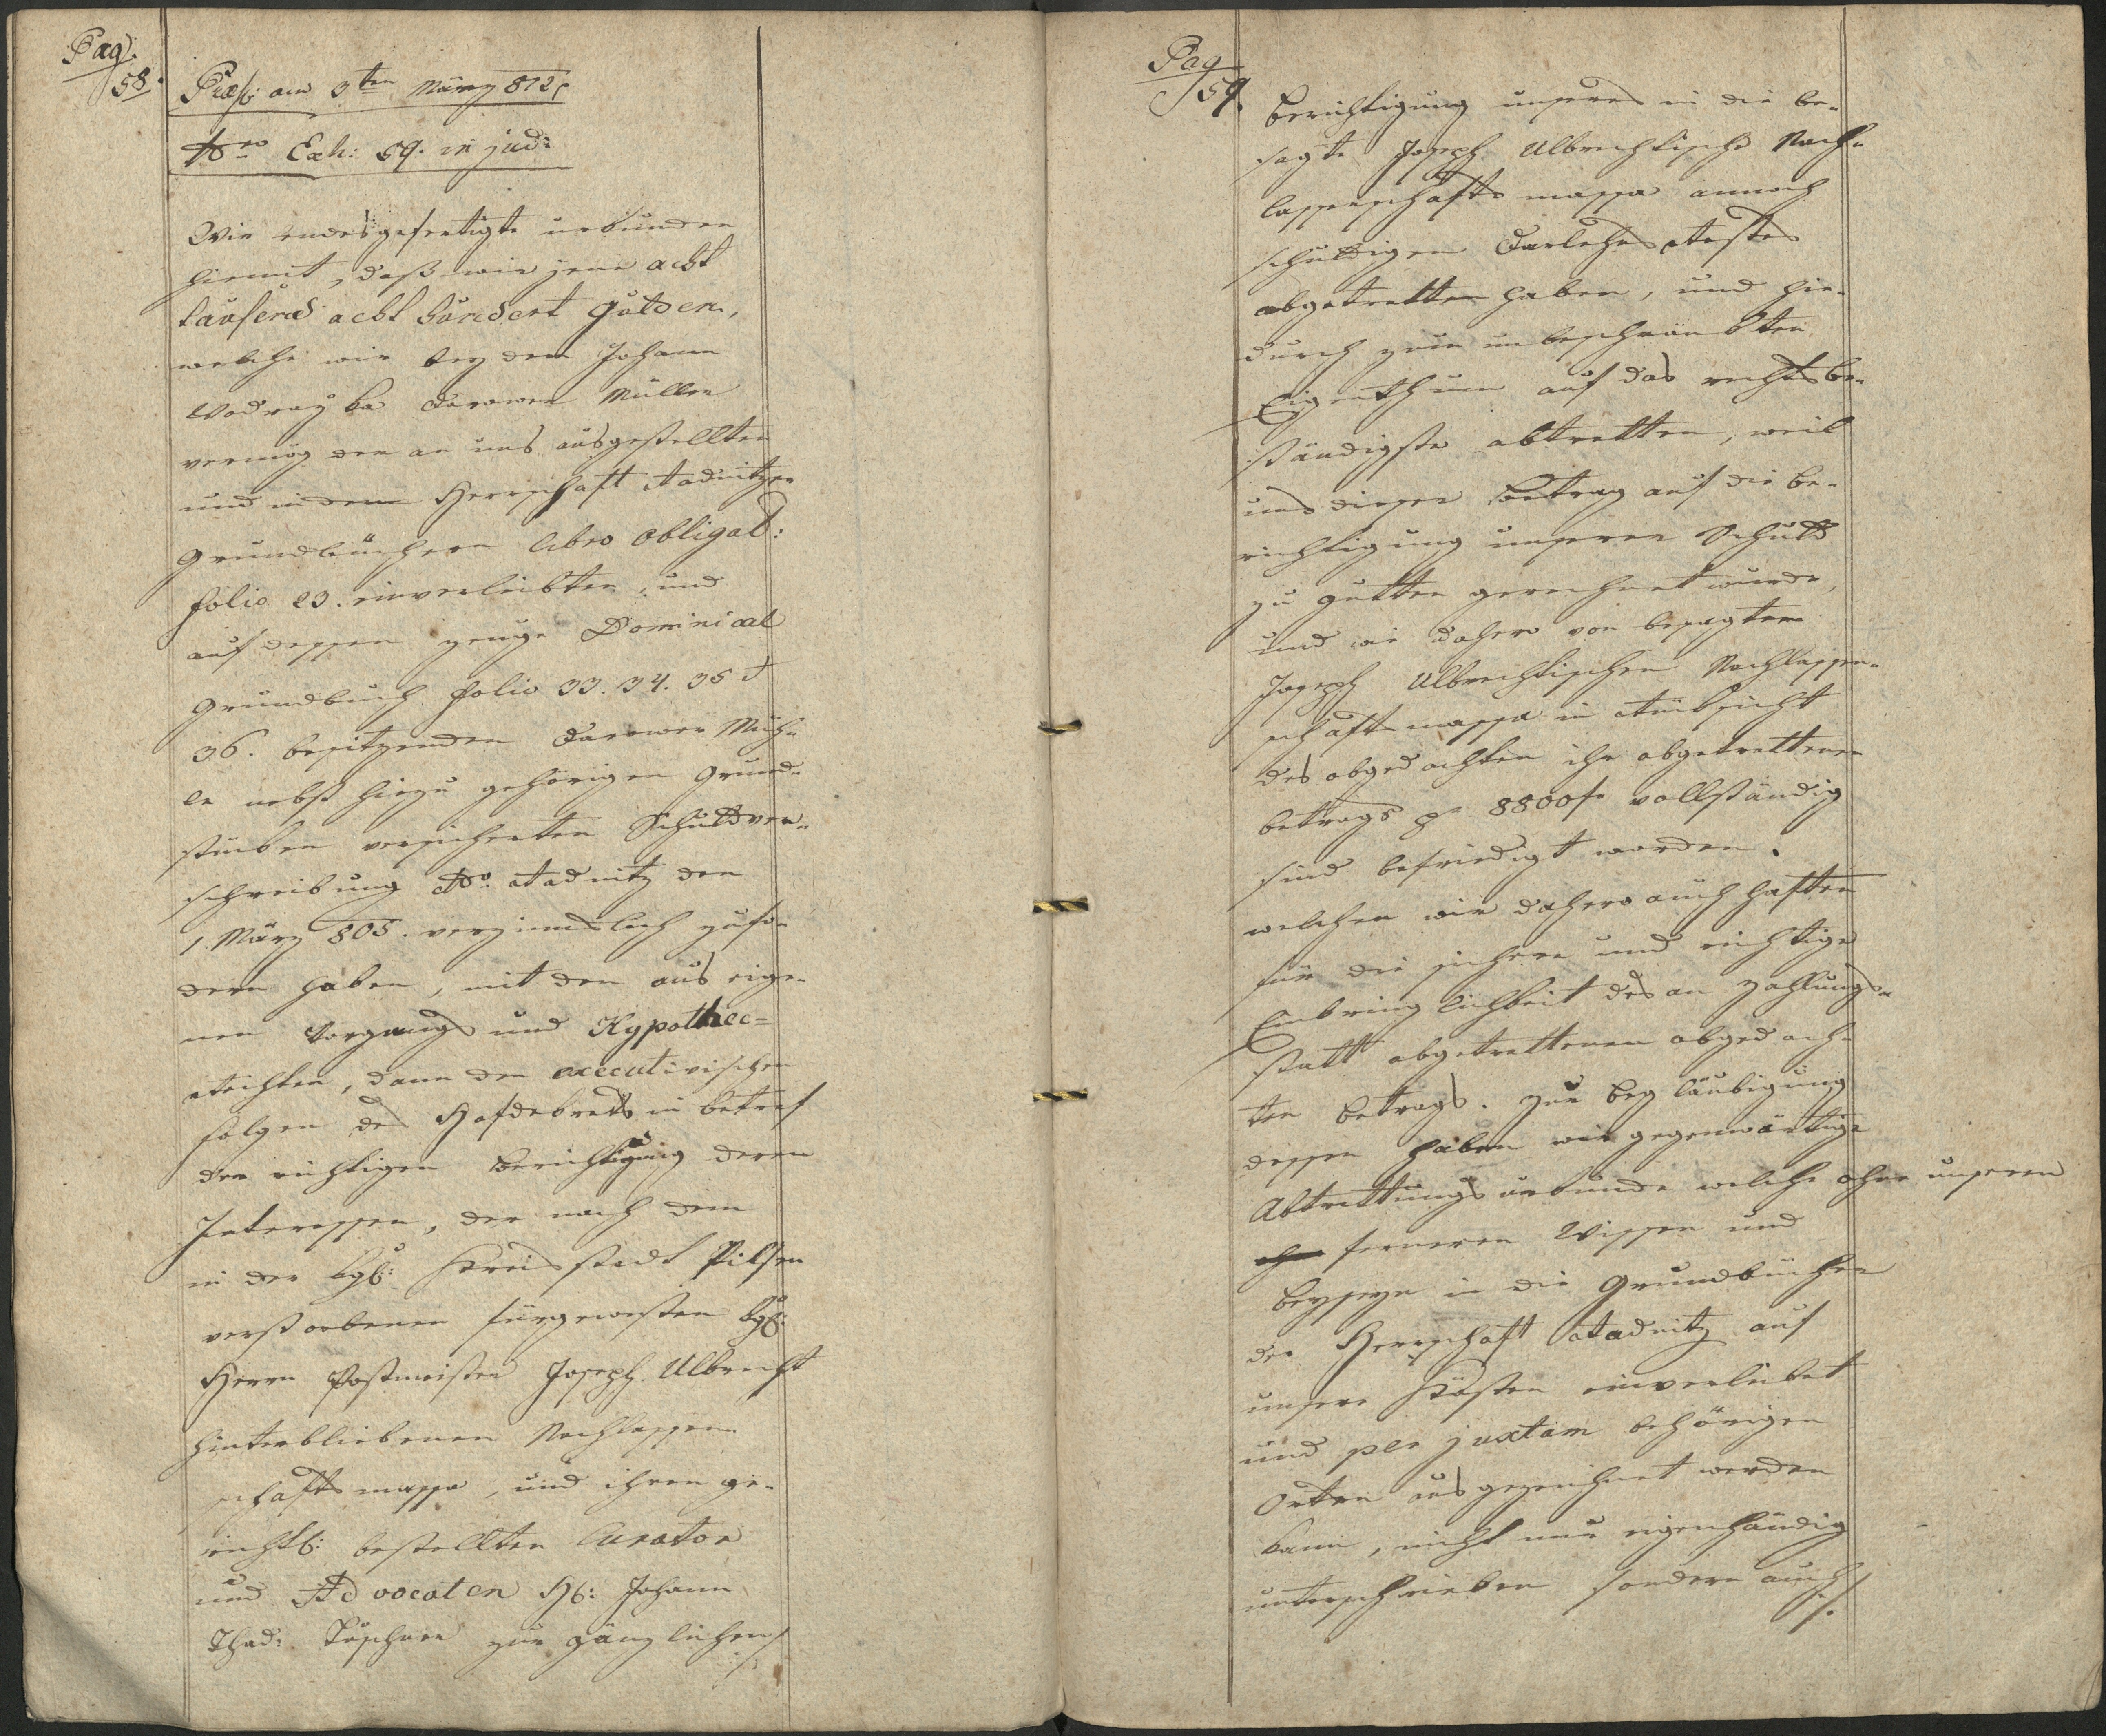 Pag:
58.
Præs: am 3ten März 812
Nro Exh: 59. in jud:
Wir endesgefertigte urkunden
hiemit, daß wir jene acht
tausend acht hundert gulden,
welche wir bey dem Johann
Wodrazka Darower Müller
vermög der an uns ausgestellten
und in dem Herrschaft Radnitzer
Grundbüchern libro obligat:
folio 23. einverleibten, und
auf dessen zeuge Dominical
Grundbuch folio 33. 34. 35 &
36. besitzenden Darower Müh„
le nebst hiezu gehörigen Grund„
stücken versicherten Schuldver„
schreibung ddo. Radnitz den
1. März 805. verzinnslich zufo„
dern haben, mit den aus eige„
nen Vorgangs und Hypothec=
Rechten, dann den executivischen
folgen des Hofdekrets in betref
der richtigen Berichtigung deren
Interessen, der nach dem
in der kgl: Kreisstadt Pilsen
verstorbenen fürgewesten kgl:
Herrn Postmeister Joseph Ulbrecht
hinterbliebenen Nachlassen„
schafts massa, und ihren ge„
richtl: bestellten Curator
und Advocaten H: Johann
Thad: zur gänzlichen
Pag
59.
Berichtigung unseres in die be„
sagte Joseph Ulbrechtische Nach„
lassenschafts massa annoch
schuldigen Darlehns Restes
abgetretten haben, und hie„
durch zum unbeschränkten
Eigenthum auf das rechtsbe„
ständigste abtretten, weil
uns dieser Betrag auf die Be„
richtigung unserer Schuld
zu gutten gerechnet wurde,
und wir dahero von besagter
Joseph Ulbrechtischen Nachlassen„
schafts massa in Rücksicht
des abgedachten ihr abgetrettenen
betrags pr 8800 f vollständig
sind befriedigt worden.
welchen wir dahero auch haften
für die sichere und richtige
Einbringlichkeit des an Zahlungs„
statt abgetrettenen abgedach„
ten Betrags. Zur Begläubigung
dessen haben wir gegenwärtige
Abtrettungs urkunde welche ohne unseren
ferneren Wissen und
beyseyn in die Grundbücher
der Herrschaft Radnitz auf
unsere Kösten einverleibet
und per juxtam behörigen
Orten ausgezeichnet werden
kann, nicht nur eigenhändig
unterschrieben sondern auch